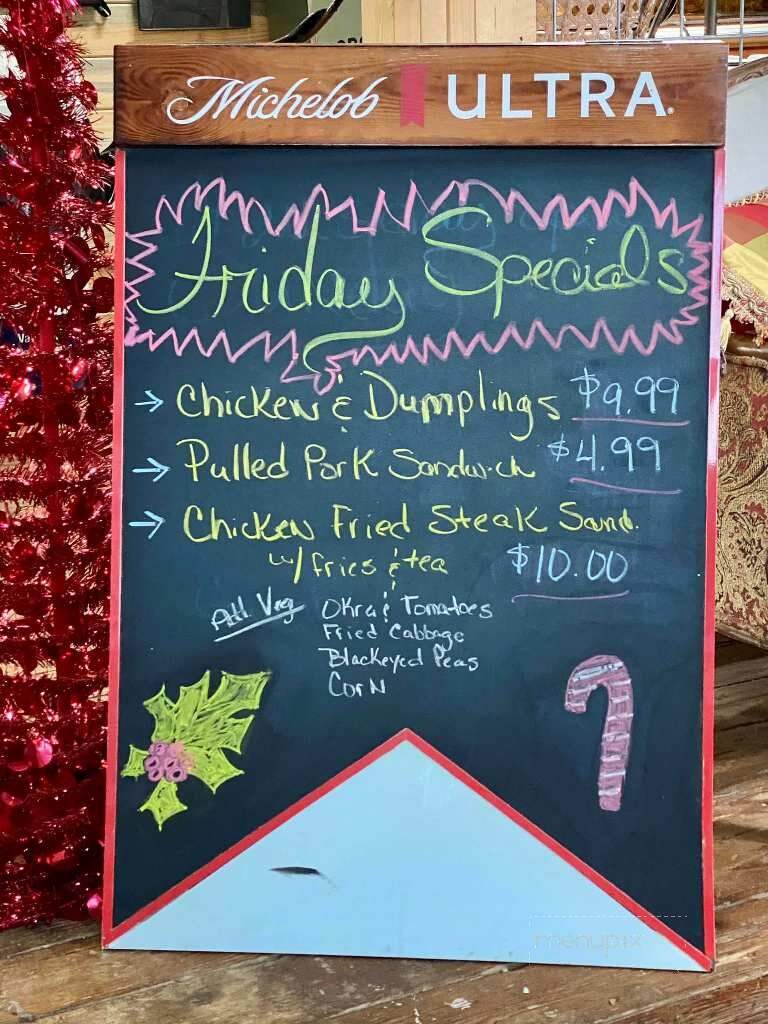 Michelob ULTRA
Friday Specials
→ Chicken & Dumplings $9.99
→ Pulled Pork Sandwich $4.99
→ Chicken Fried Steak Sand.
w/ fries & tea $10.00
Att. Veg Okra & Tomatoes
Fried Cabbage
Blackeyed Peas
Corn
menupix